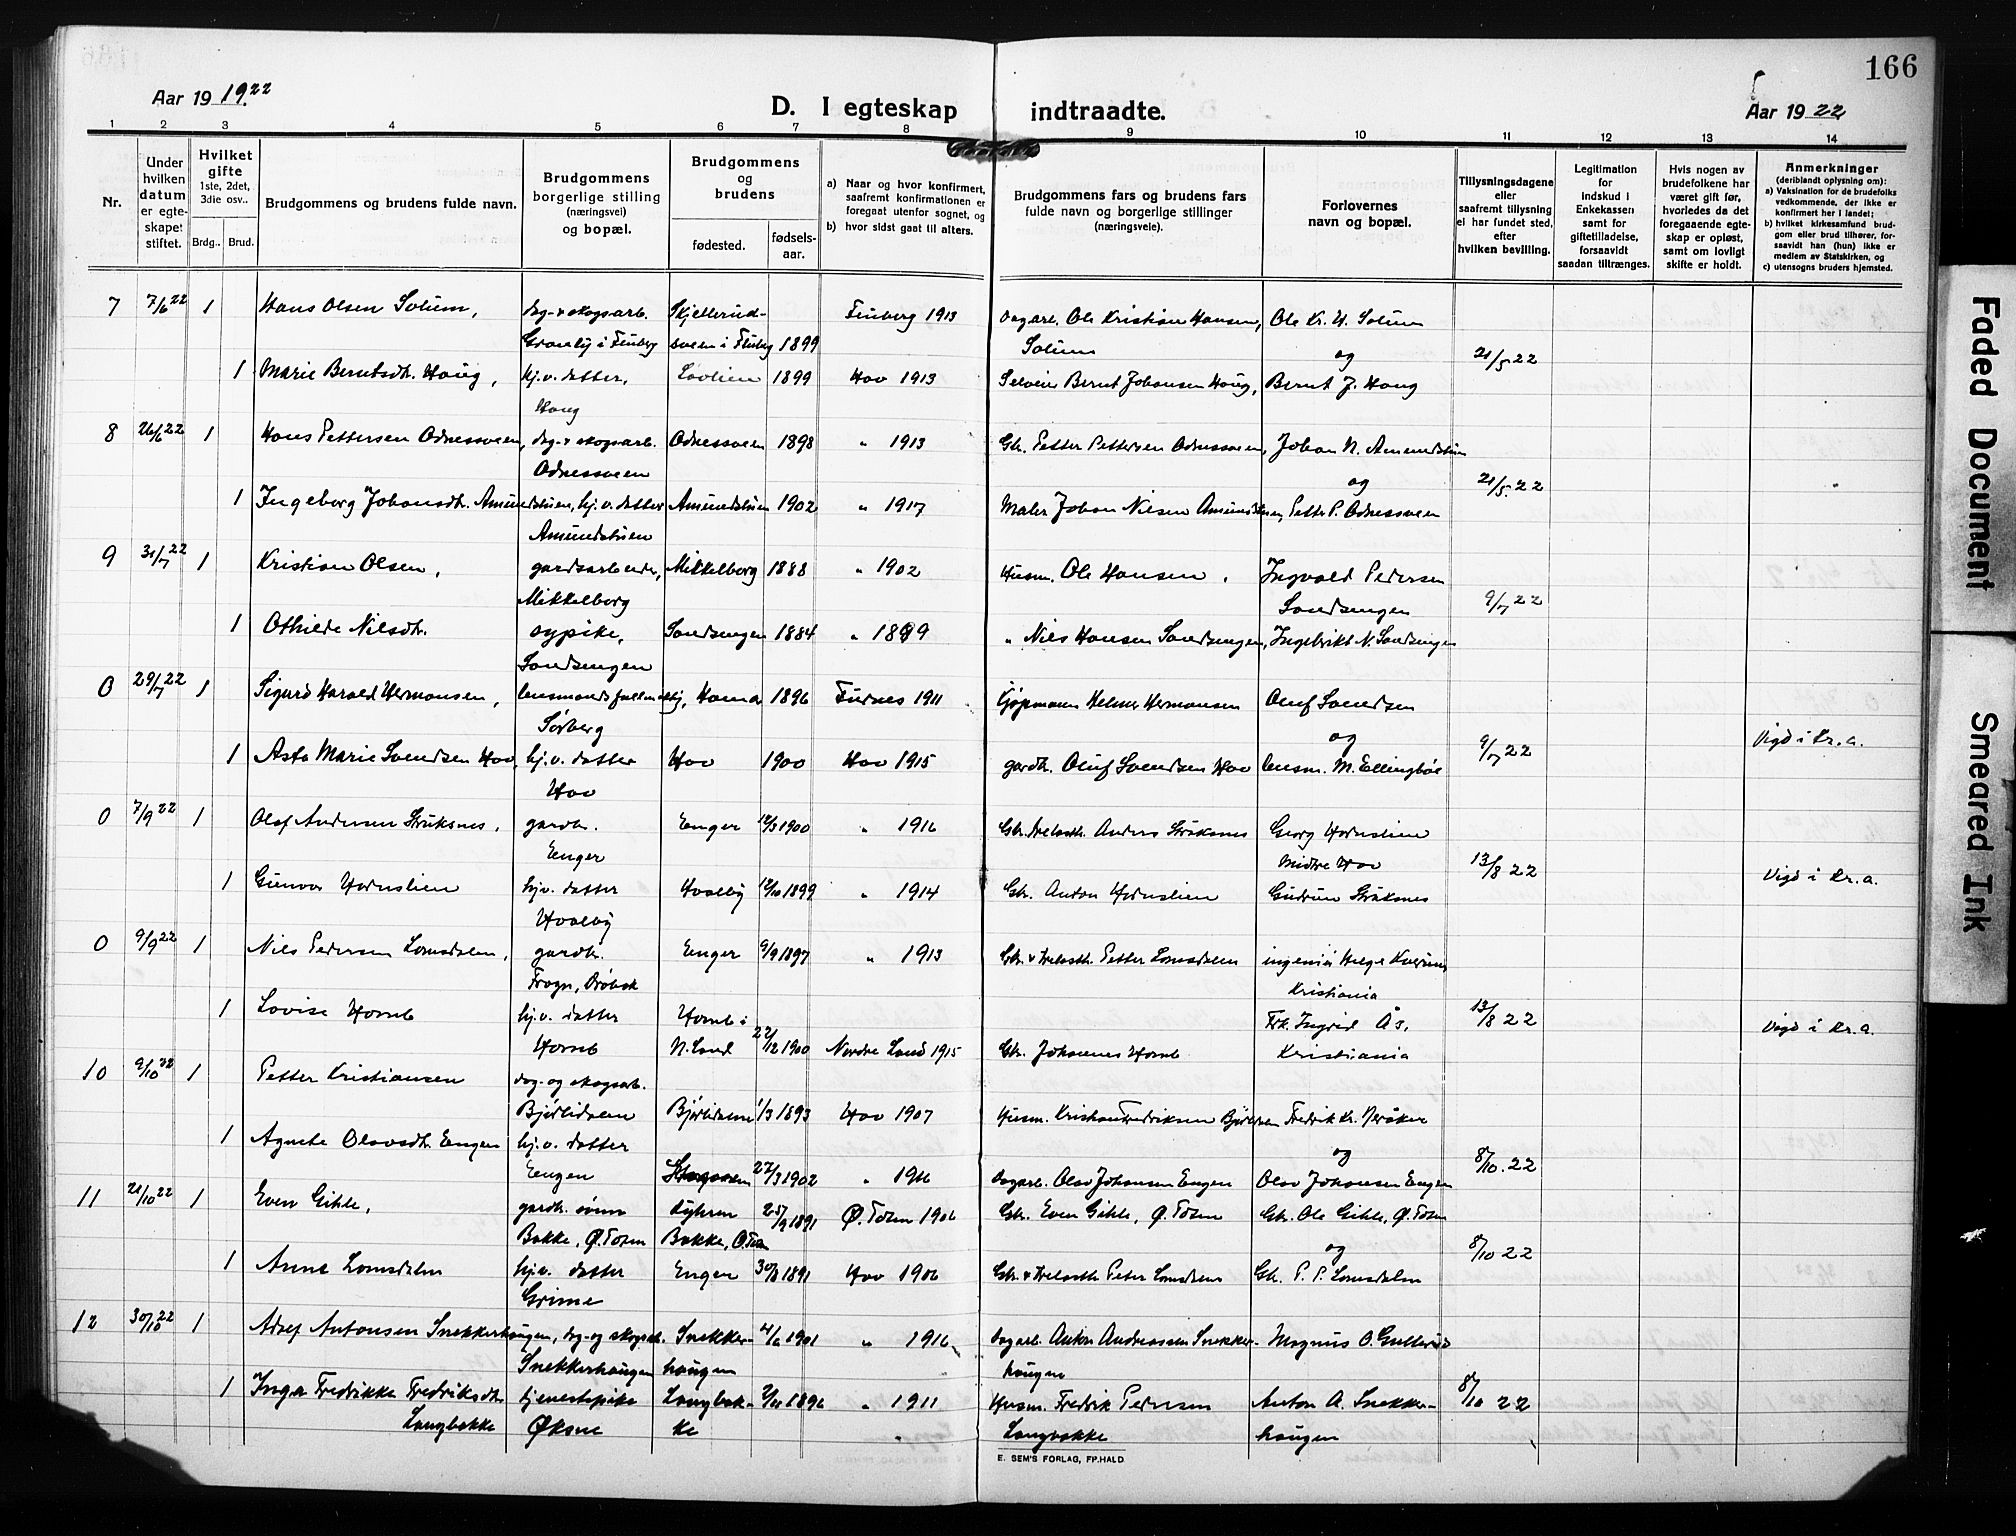 166
Aar 19 19.22
D. I egteskap indtraadte.
Aar 1922
1 2 3 4 5 6 7 8 9 10 11 12 13 14
Nr.
Under hvilken datum er egteskapet stiftet.
Hvilket gifte 1ste, 2det, 3die osv..
Brdg.. Brud.
Brudgommens og brudens fulde navn.
Brudgommens borgerlige stilling (næringsvei) og bopæl.
Brudgommens og brudens
fødested. fødsels-aar.
a) Naar og hvor konfirmert, saafremt konfirmationen er foregaat utenfor sognet, og
b) hvor sidst gaat til alters.
Brudgommens fars og brudens fars fulde navn og borgerlige stillinger (næringsveie).
Forlovernes navn og bopæl.
Tillysningsdagene eller saafremt tillysning ei har fundet sted, efter hvilken bevilling.
Legitimation for indskud i Enkekassen samt for giftetilladelse, forsaavidt saadan tiltrænges.
Hvis nogen av brudefolkene har været gift før, hvorledes da det foregaaende egteskap er opløst, samt om lovligt skifte er holdt.
Anmerkninger (deriblandt oplysning om): a) Vaksination for de brudefolks vedkommende, der ikke er konfirmert her i landet; b) hvilket kirkesamfund brudgom eller brud tilhører, forsaavidt han (hun) ikke er medlem av Statskirken, og c) utensogns bruders hjemsted.
7 7/6 22 1 Hans Olsen Solum, dag- & skogsarb. Skjellerud- Fluberg 1913 dagarb. Ole Kristian Hansen, Ole Kr. H. Solum
Granlij i Fluberg sveen i Fluberg 1899 Solum og 21/5 22
1 Marie Berntsdt. Haug, hj.v. datter, Lovlien 1899 Hov 1913 Selveier Bernt Johansen Haug, Bernt J. Haug
Haug
8 26/6 22 1 Hans Pettersen Odnessveen, dag- & skogsarb. Odnessveen 1898 " 1913 Gbr. Petter Pettersen Odnessveen, Johan N. Amundstuen
Odnessveen og 21/5 22
1 Ingeborg Johansdt. Amundstuen, hj.v. datter Amundstuen 1902 " 1917 Maler Johan Nilsen Amundstuen, Pettr P. Odnessveen
Amundstuen
9 31/7 22 1 Kristian Olsen, gardsarbeider, Mikkelborg 1888 " 1902 Husm. Ole Hansen, Ingvald Pedersen
Mikkelborg Sandsengen 9/7 22
1 Othilde Nilsdt. sypike, Sandsengen 1884 " 1899 " Nils Hansen Sandsengen, Ingebrikt N. Sandsengen
Sandsengen
0 29/7 22 1 Sigurd Harald Hermansen, lensmandsfullmektig, Hamar 1896 Furnes 1911 Kjøpmann Helmer Hermansen Oluf Svendsen
Sørberg og 9/7 22 Vigd i Kr.a.
1 Asta Marie Svendsen Hov, hj.v. datter Hov 1900 Hov 1915 gardb. Oluf Svendsen Hov lensm. M. Ellingbøe
Hov
0 7/9 22 1 Olaf Andersen Struksnes, gardbr. Enger 12/3 1900 " 1916 Gbr. Anders Struksnes Georg Hornslien
Enger Midtre Hov 13/8 22 Vigd i Kr.a.
1 Gunvor Hornslien hj.v. datter Hvalby 12/10 1899 " 1914 Gbr. Anton Hornslien Gudrun Struksnes
Hvalby
0 9/9 22 1 Nils Pedersen Lomsdalen, gardbr. Enger 9/9 1897 " 1913 Gbr. & Petter Lomsdalen ingeniør Helge
Frogn, Drøbak Kristiania
1 Lovise Homb hj.v. datter Homb i Frk. Ingrid Ås, 13/8 22 Vigd i Kr.a.
Homb N. Land 22/12 1900 Nordre Land 1915 Gbr. Johannes Homb Kristiania
10 9/10 22 1 Petter Kristiansen dag- og skogsarb.
Bjørlidalen Bjørlidalen 1/3 1893 Hov 1907 Husm. Kristian Fredriksen Bjørlidalen Fredrik Kr. Neråker
1 Agnete Olavsdt. Engen hj.v. datter og 8/10.22
Engen 27/3 1902 " 1916 dagarb. Olav Johansen Engen Olav Johansen Engen
11 21/10 22 1 Even Gihle, gardb. øvre Dyhren 25/9 1891 Ø. Toten 1906 Gbr. Even Gihle, Ø. Toten Gbr. Ole Gihle, Ø. Toten
Bakke, Ø. Toten Bakke, Ø. Toten og 8/10 22
1 Anne Lomsdalen hj.v. datter Enger 30/8 1891 Hov 1906 Gbr. & Peter Lomsdalen Gbr. P. P. Lomsdalen
Grime
12 30/10 22 1 Adolf Antonsen Snekkerhaugen, dag- og skogsarb. Snekker- 4/6 1901 " 1916 dagarb. Anton Andreassen Snekker- Magnus O. Gullerud
Snekkerhaugen haugen haugen
1 Inga Fredrikke Fredriksdt. tjenestepike Langbak- 2/11 1896 " 1911 Husm. Fredrik Pedersen Anton A. Snekker- 8/10 22
Langbakke Øksne ke " Langbakke haugen
E. SEM'S FORLAG, FP.HALD
Faded Document
Smeared Ink